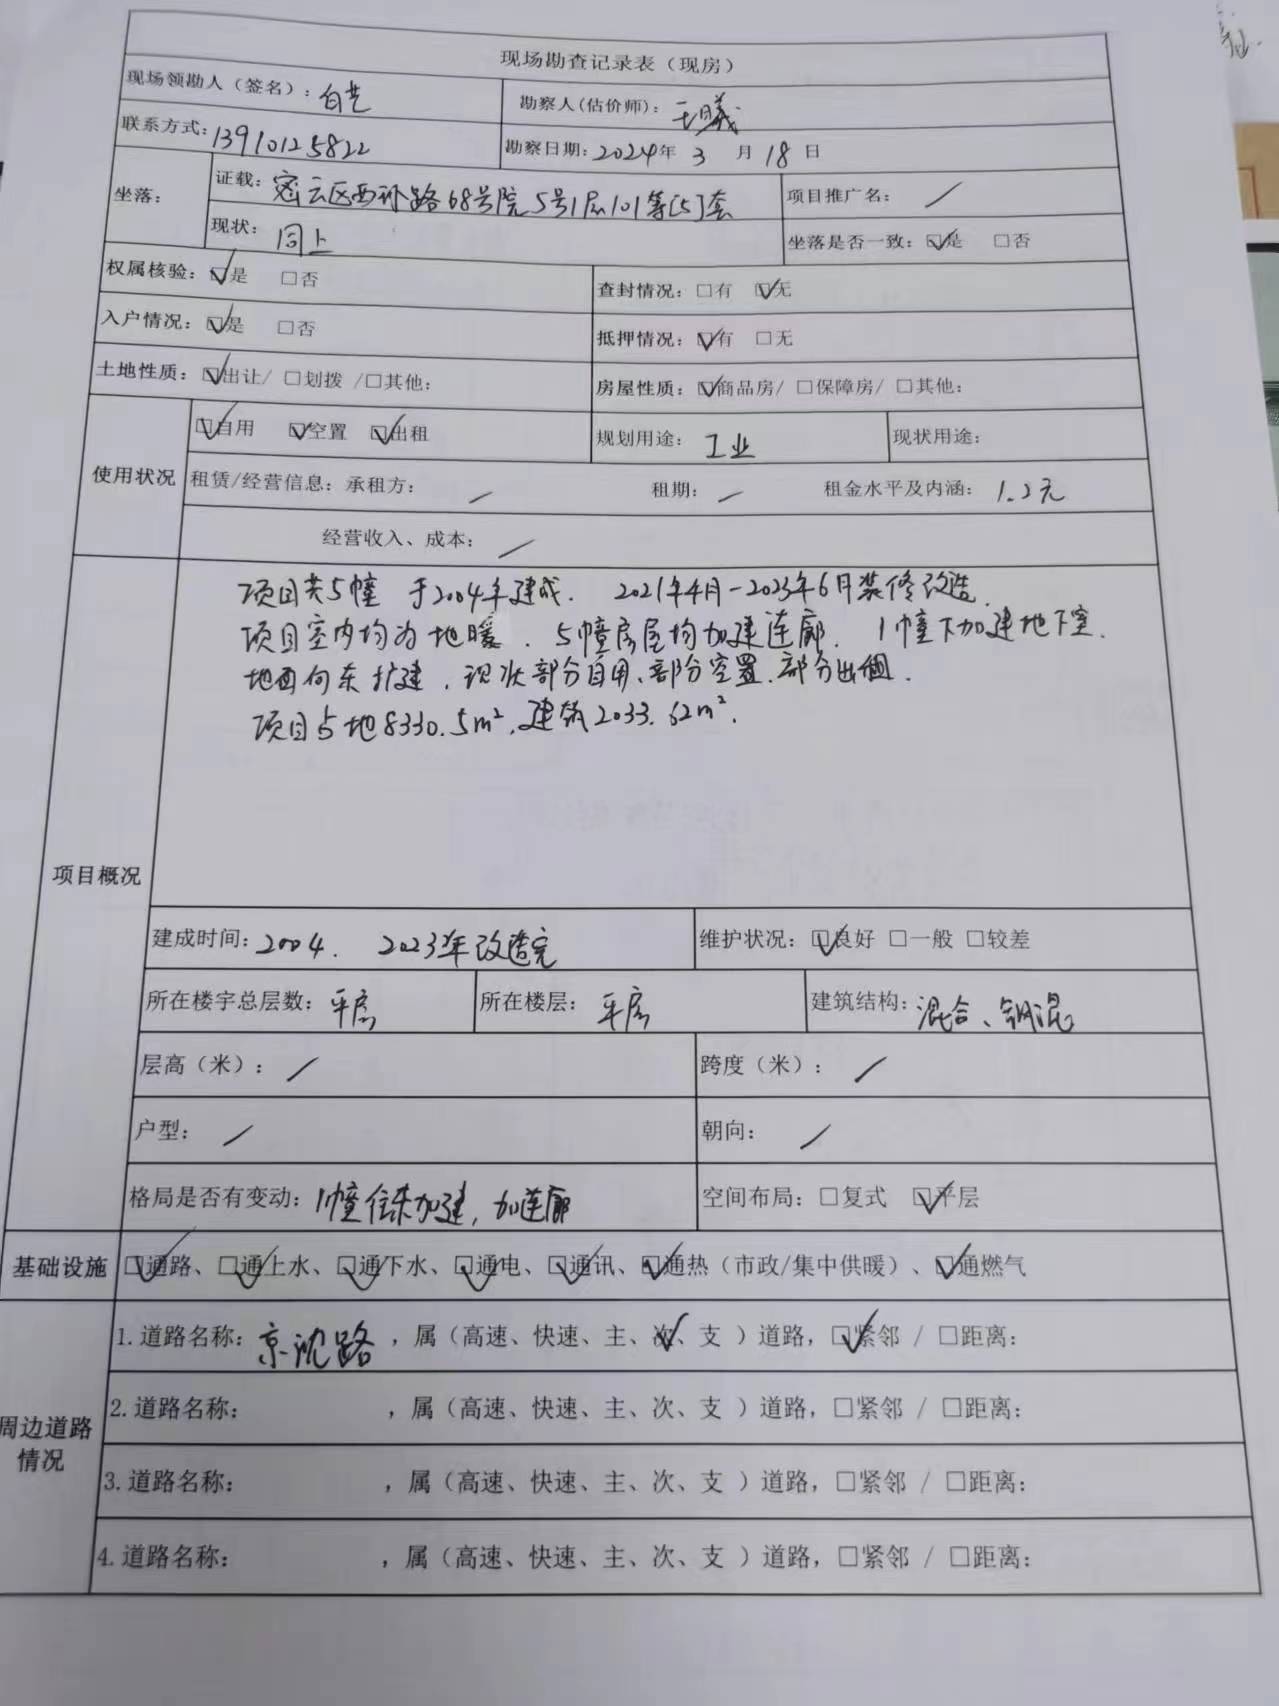 现场勘查记录表（现房）
现场领勘人（签名）：白艺 勘察人(估价师)：王曦
联系方式：13910125822 勘察日期：2024年 3 月 18 日
坐落： 证载：密云区西环路68号院5号1层101等[5]套 项目推广名： /
现状：同上 坐落是否一致：☑是 □否
权属核验：☑是 □否 查封情况：□有 ☑无
入户情况：☑是 □否 抵押情况：☑有 □无
土地性质：☑出让/ □划拨 /□其他： 房屋性质：☑商品房/ □保障房/ □其他：
使用状况 ☑自用 ☑空置 ☑出租 规划用途：工业 现状用途：
租赁/经营信息：承租方： / 租期： / 租金水平及内涵：1.2元
经营收入、成本： /
项目概况
项目共5幢 于2004年建成. 2021年4月-2023年6月装修改造.
项目室内均为地暖. 5幢房屋均加建连廊. 1幢下加建地下室.
地面向东扩建. 现状部分自用、部分空置、部分出租.
项目占地8330.5m², 建筑2033.62m².
建成时间：2004. 2023年改造完 维护状况：☑良好 □一般 □较差
所在楼宇总层数：平房 所在楼层：平房 建筑结构：混合、钢混
层高（米）： / 跨度（米）： /
户型： / 朝向： /
格局是否有变动：1幢往东加建, 加连廊 空间布局：□复式 ☑平层
基础设施 ☑通路、☑通上水、☑通下水、☑通电、☑通讯、☑通热（市政/集中供暖）、☑通燃气
周边道路情况
1.道路名称：京沈路 ，属（高速、快速、主、次✓、支 ）道路，☑紧邻 / □距离：
2.道路名称： ，属（高速、快速、主、次、支 ）道路，□紧邻 / □距离：
3.道路名称： ，属（高速、快速、主、次、支 ）道路，□紧邻 / □距离：
4.道路名称： ，属（高速、快速、主、次、支 ）道路，□紧邻 / □距离：